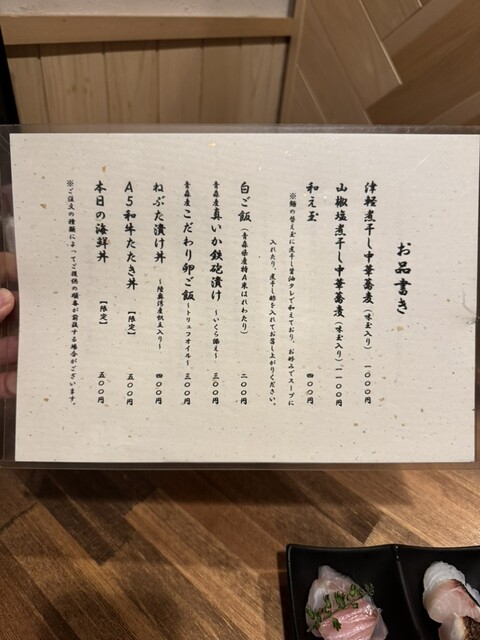 お品書き
津軽煮干し中華蕎麦（味玉入り） 一〇〇〇円
山椒塩煮干し中華蕎麦（味玉入り） 一一〇〇円
和え玉 四〇〇円
※麺の替え玉に煮干し醤油タレで和えており、お好みでスープに
入れたり、煮干し酢を入れてお召し上がりください。
白ご飯（青森県産特A米はれわたり） 二〇〇円
青森産 真いか鉄砲漬け～いくら添え～ 三〇〇円
青森産 こだわり卵ご飯～トリュフオイル～ 三〇〇円
ねぶた漬け丼～陸奥湾産帆立入り～ 四〇〇円
A5和牛たたき丼【限定】 五〇〇円
本日の海鮮丼【限定】 五〇〇円
※ご注文の種類によってご提供の順番が前後する場合がございます。